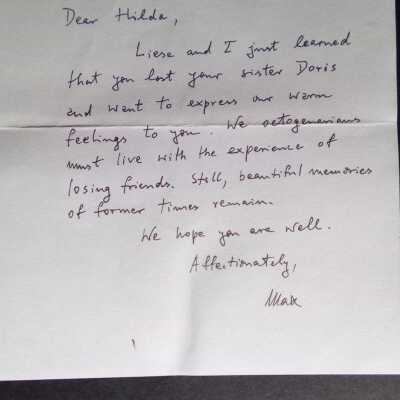 Dear Hilda,
Liese and I just learned
that you lost your sister Doris
and want to express our warm
feelings to you. We octogenarians
must live with the experience of
losing friends. Still, beautiful memories
of former times remain.
We hope you are well.
Affectionately,
Max